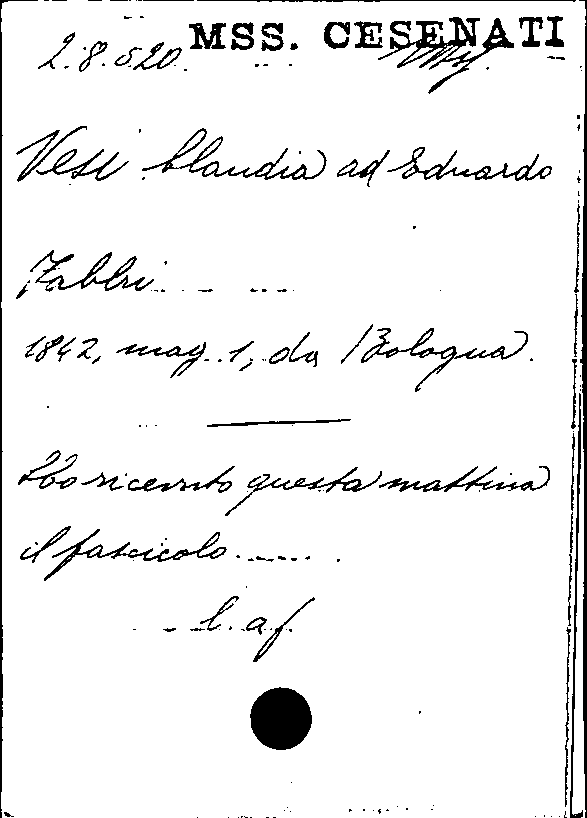 MSS. CESENATI
2.8.520.
Vesi Claudia ad Eduardo
Fabbri
1842, mag. 1, da Bologna.
Ho ricevuto questa mattina
il fascicolo......
l. af.